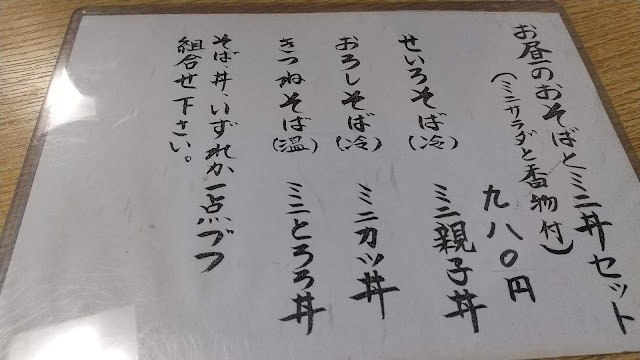 お昼のおそばとミニ丼セット
(ミニサラダと香物付)
九八〇円
せいろそば(冷) ミニ親子丼
おろしそば(冷) ミニカツ丼
きつねそば(温) ミニとろろ丼
そば、丼、いずれか一点づつ
組合せ下さい。